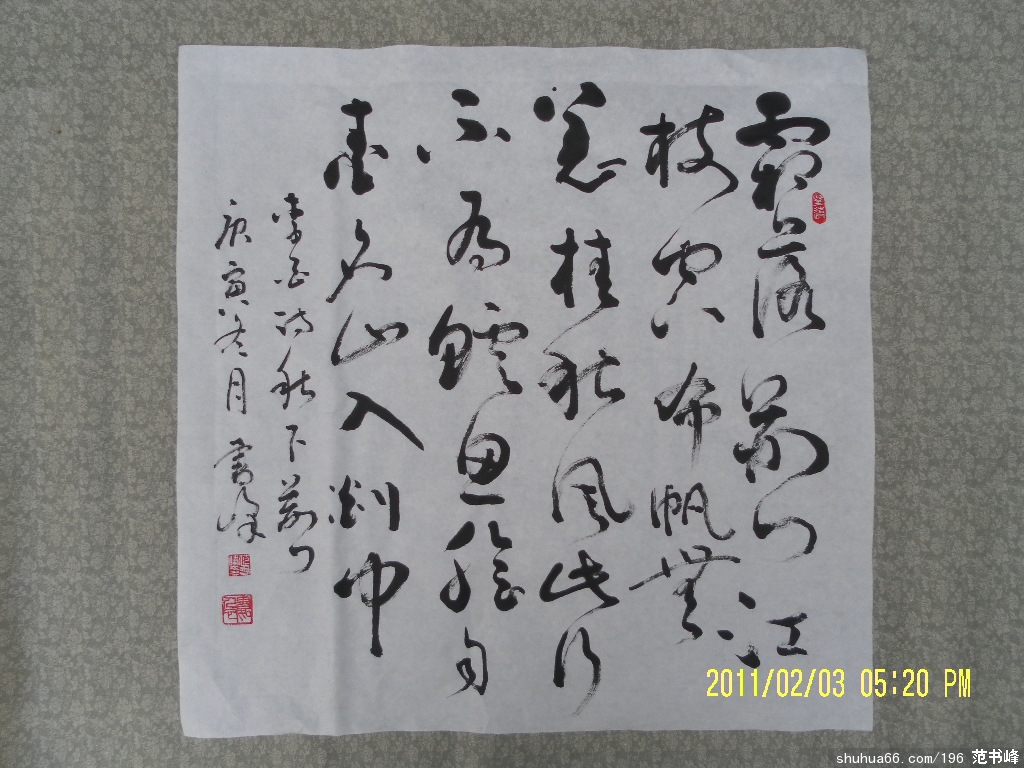 霜落荆门江
树空布帆無
恙挂秋风此行
不为鲈鱼鲙自
爱名山入剡中
李白诗秋下荆门
庚寅冬月書峰
2011/02/03 05:20 PM
shuhua66.com/196 范书峰